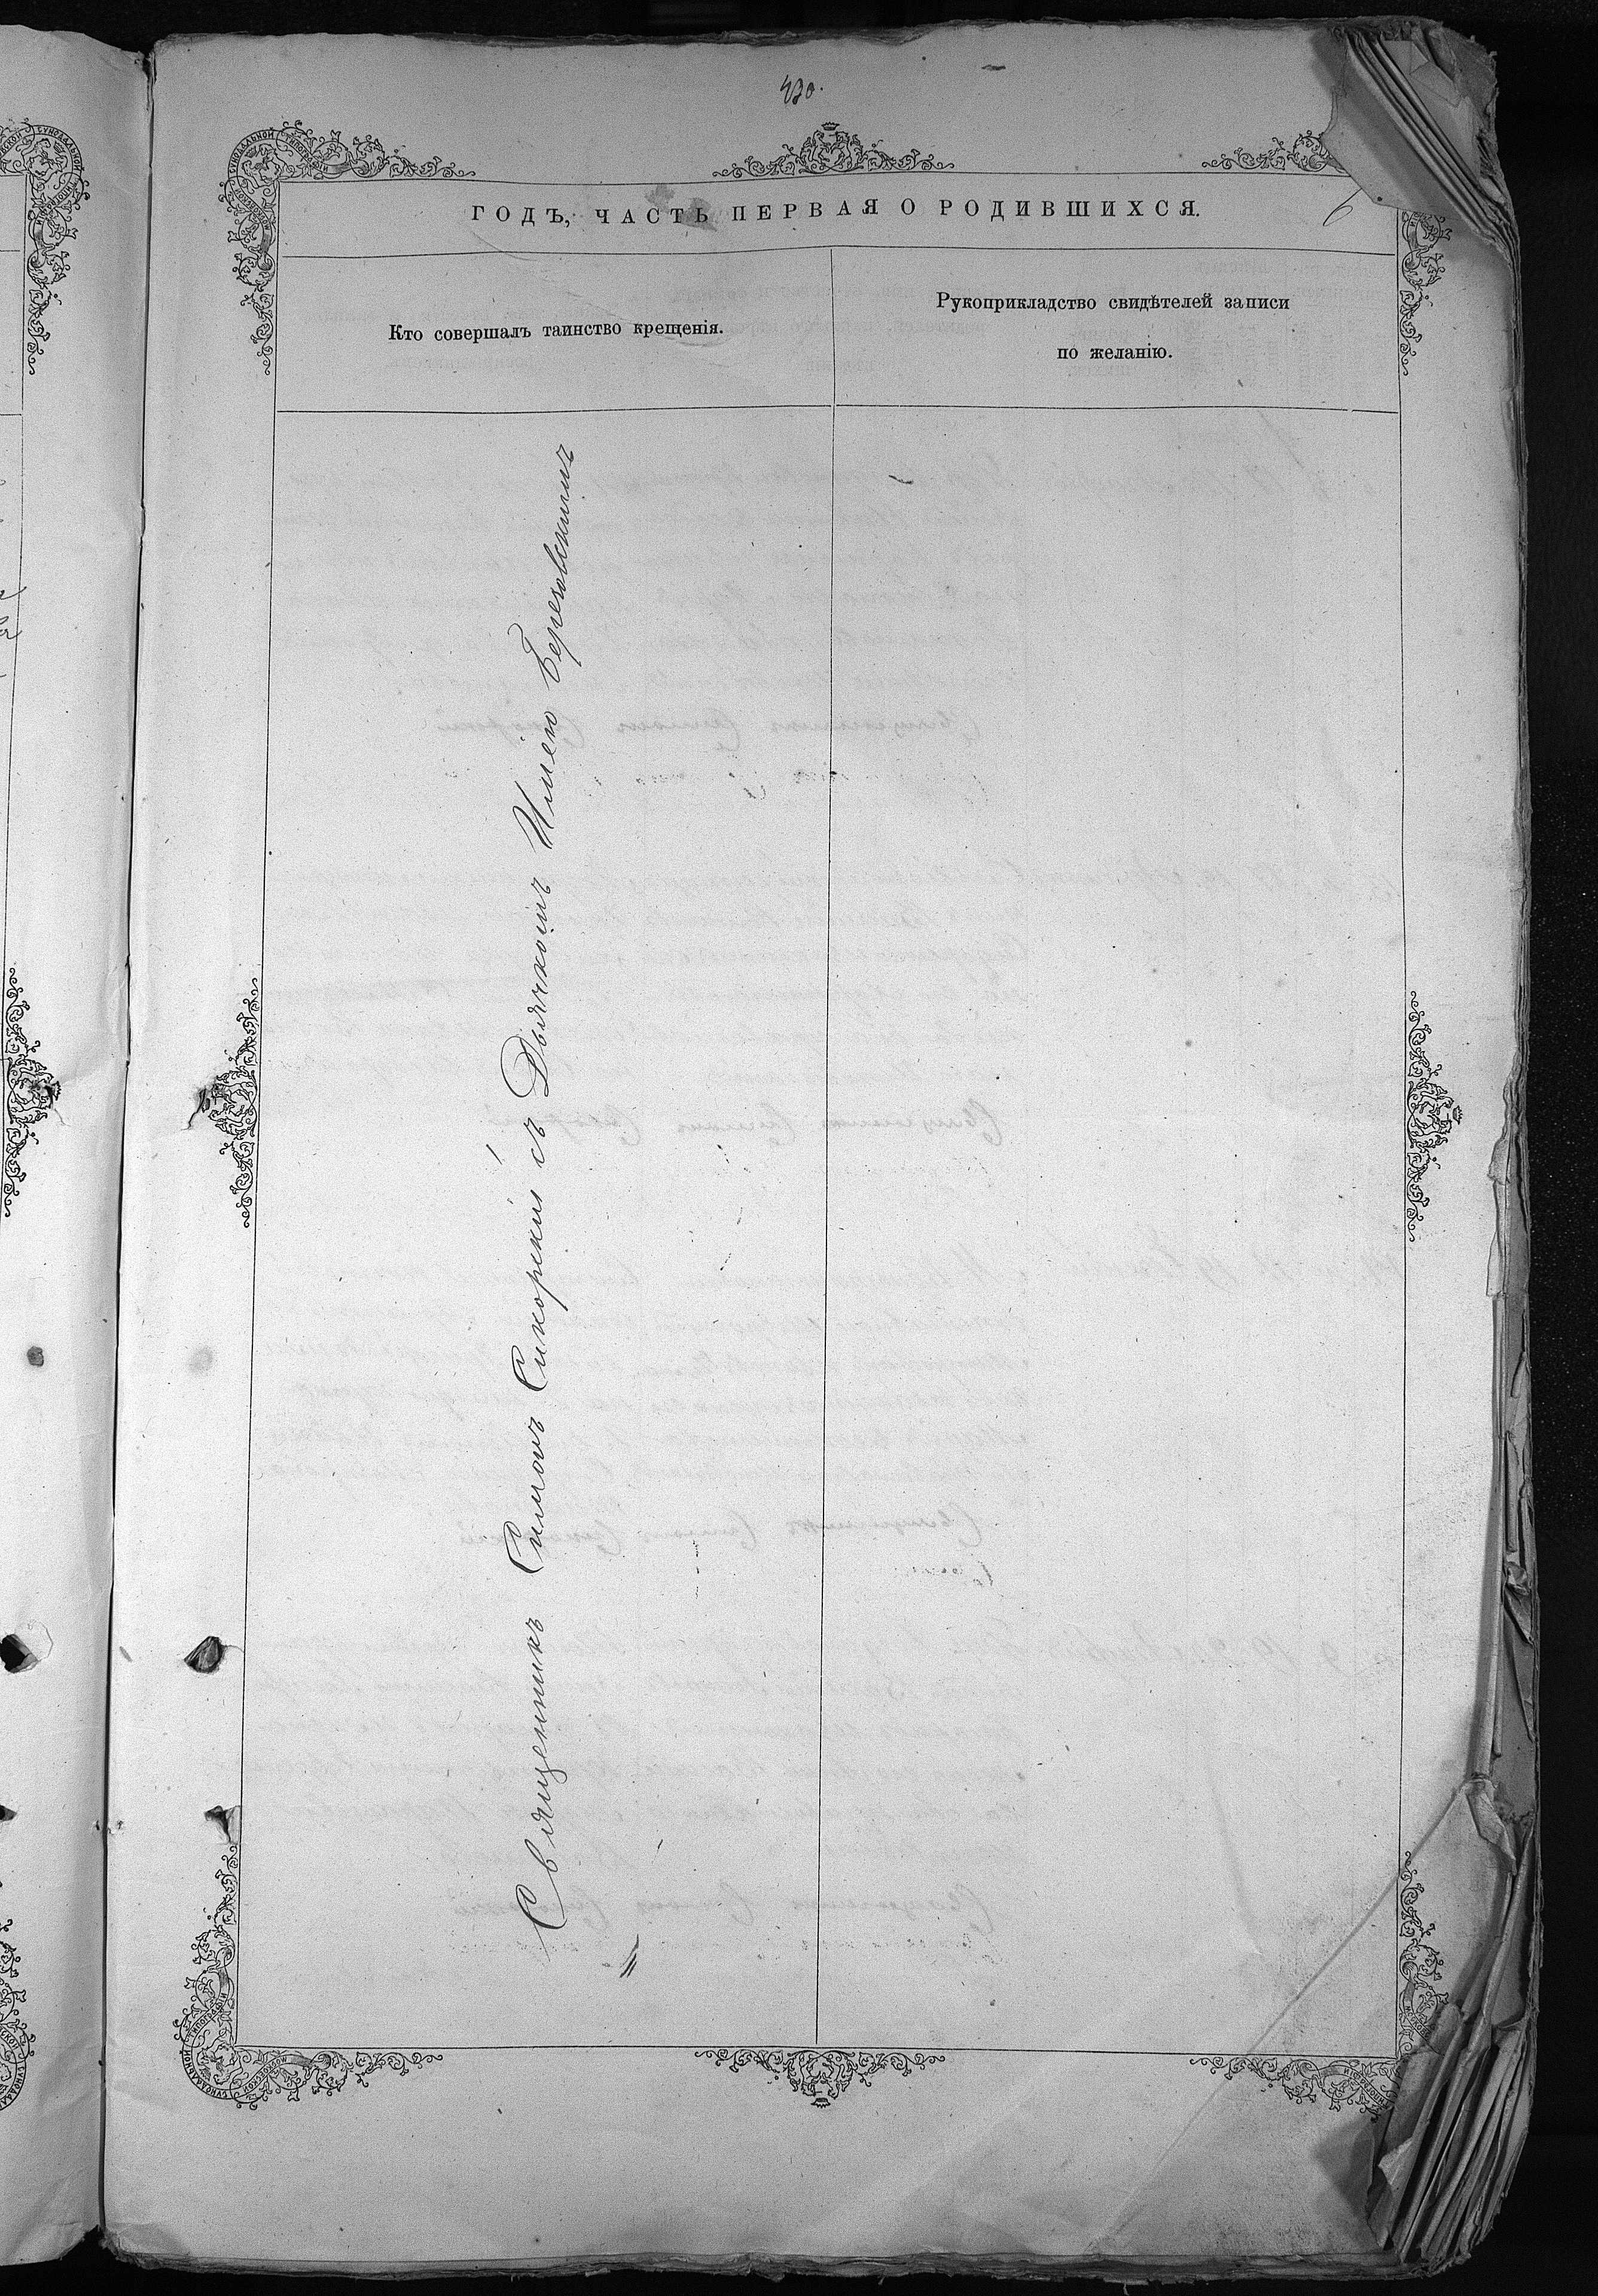 430.
ГОДЪ, ЧАСТЬ ПЕРВАЯ О РОДИВШИХСЯ.
6
Кто совершалъ таинство крещенія.
Рукоприкладство свидѣтелей записи
по желанію.
Священникъ Симонъ Сикорскій съ Дьячкомъ Иліею Березовскимъ